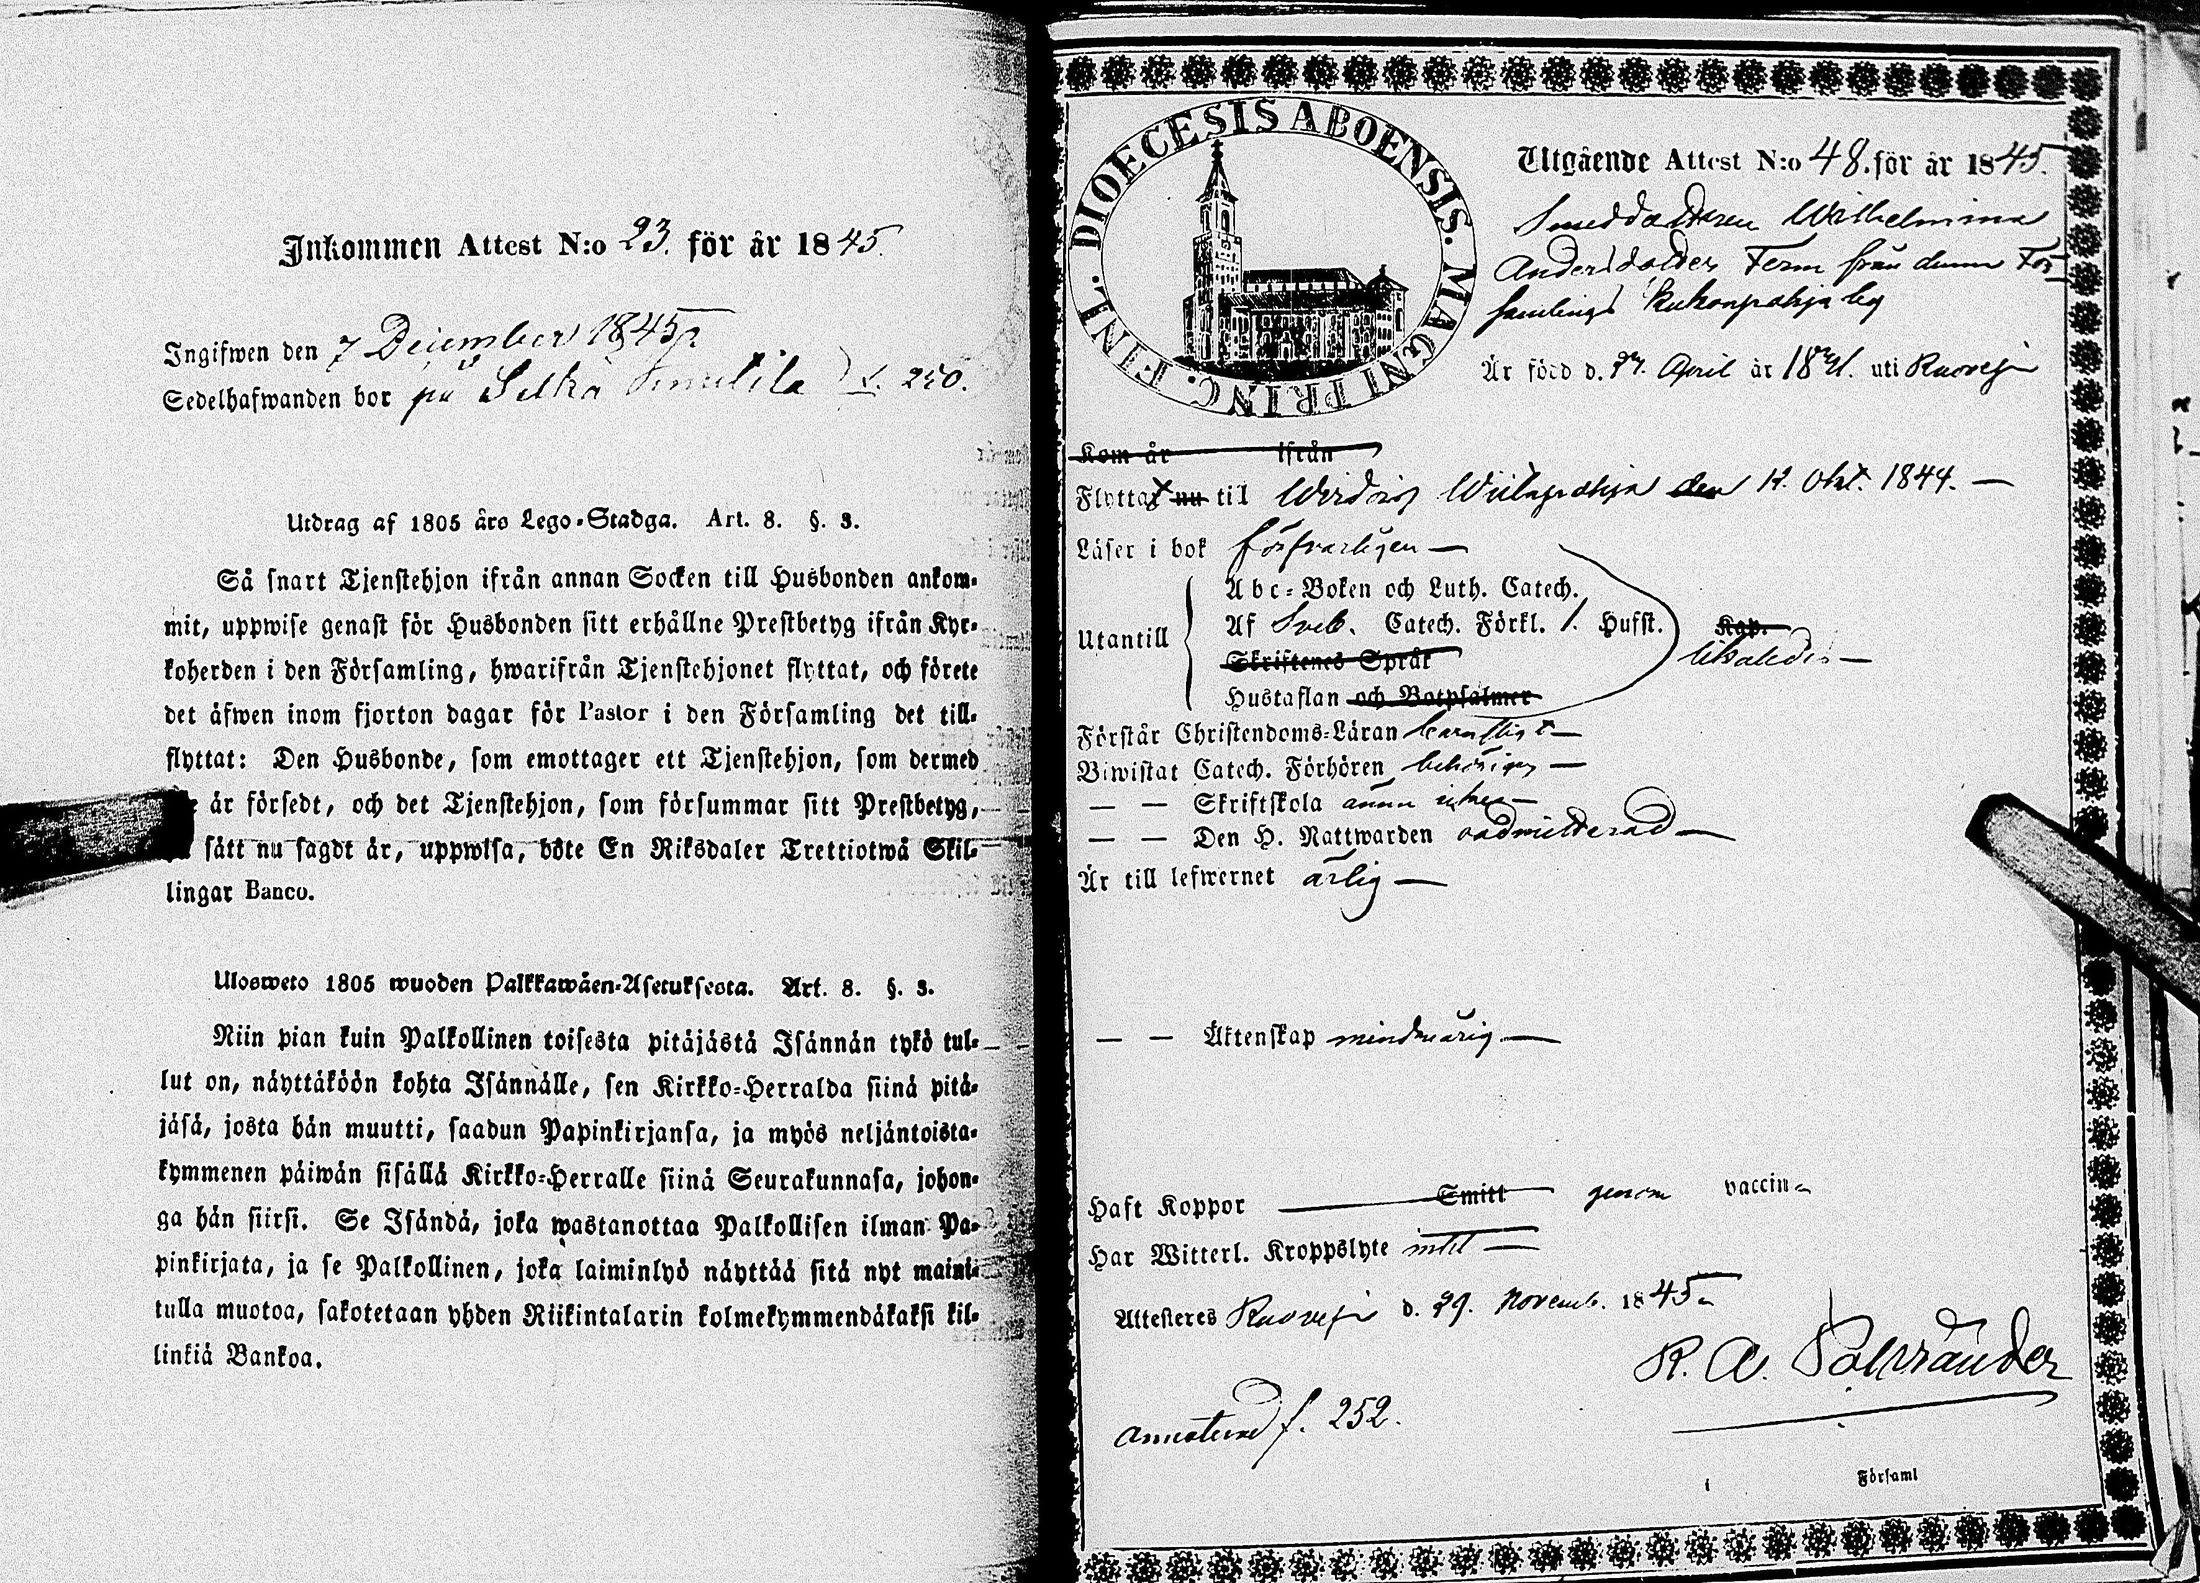 Inkommen Attest N:o 23. för år 1845.
Ingifwen den 7 December 1845
Sedelhafwanden bor på Selkä f. 250.
Utdrag af 1805 års Lego-Stadga. Art. 8. §. 3.
Så snart Tjenstehjon ifrån annan Socken till Husbonden ankom-
mit, uppwise genast för Husbonden sitt erhållne Prestbetyg ifrån Kyr-
koherden i den Församling, hwarifrån Tjenstehjonet flyttat, och förete
det äfwen inom fjorton dagar för Pastor i den Församling det till-
flyttat: Den Husbonde, som emottager ett Tjenstehjon, som dermed
är försedt, och det Tjenstehjon, som försummar sitt Prestbetyg,
sätt nu sagdt är, uppwisa, böte En Riksdaler Trettiotwå Skil-
lingar Banco.
Ulosweto 1805 wuoden Palkkawäen-Asetuksesta. Art. 8. §. 3.
Niin pian kuin Palkollinen toisesta pitäjästä Isännän tykö tul-
lut on, näyttäköön kohta Isännälle, sen Kirkko-Herralda siinä pitä-
jäsä, josta hän muutti, saadun Papinkirjansa, ja myös neljäntoista-
kymmenen päiwän sisällä Kirkko-Herralle siinä Seurakunnasa, johon-
ga hän siirsi. Se Isändä, joka wastanottaa Palkollisen ilman Pa-
pinkirjata, ja se Palkollinen, joka laiminlyö näyttää sitä nyt maini-
tulla muotoa, sakotetaan yhden Riikintalarin kolmekymmendäkaksi kil-
linkiä Bankoa.
DIOECESIS ABOENSIS. MAGNI PRINC. FINL.
Utgående Attest N:o 48. för år 1845.
Smeddottren Wilhelmina
Andersdotter Term från denna För-
samlings by
Är född d. 27. April år 18 uti Ruovesi
Kom år ifrån
Flyttat nu till Wirdois den 12 Okt. 1844.
Läser i bok försvarligen
Abc-Boken och Luth. Catech.
Utantill Af Sveb. Catech. Förkl. 1. Hufst. Kap.
Skriftenes Språk likaledes
Hustaflan och Botpsalmer
Förstår Christendoms-Läran barnsligt
Biwistat Catech. Förhören behörigen
— — Skriftskola ännu icke
— — Den H. Nattwarden oadmitterad
Är till lefwernet ärlig
— — Äktenskap minderårig
Haft Koppor Smitt genom vaccin
Har Witterl. Kroppslyte intet
Attesteres Ruovesi d. 29. Novemb. 1845
R. A.
annoterad f. 252.
Församl